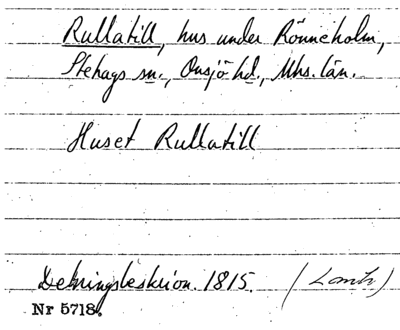 Rullatill, hus under Rönneholm,
Stehags sn., Onsjö hd., Mhs. län.
Huset Rullatill
Delningsbeskrivn. 1815. (Lantm)
Nr 5718.